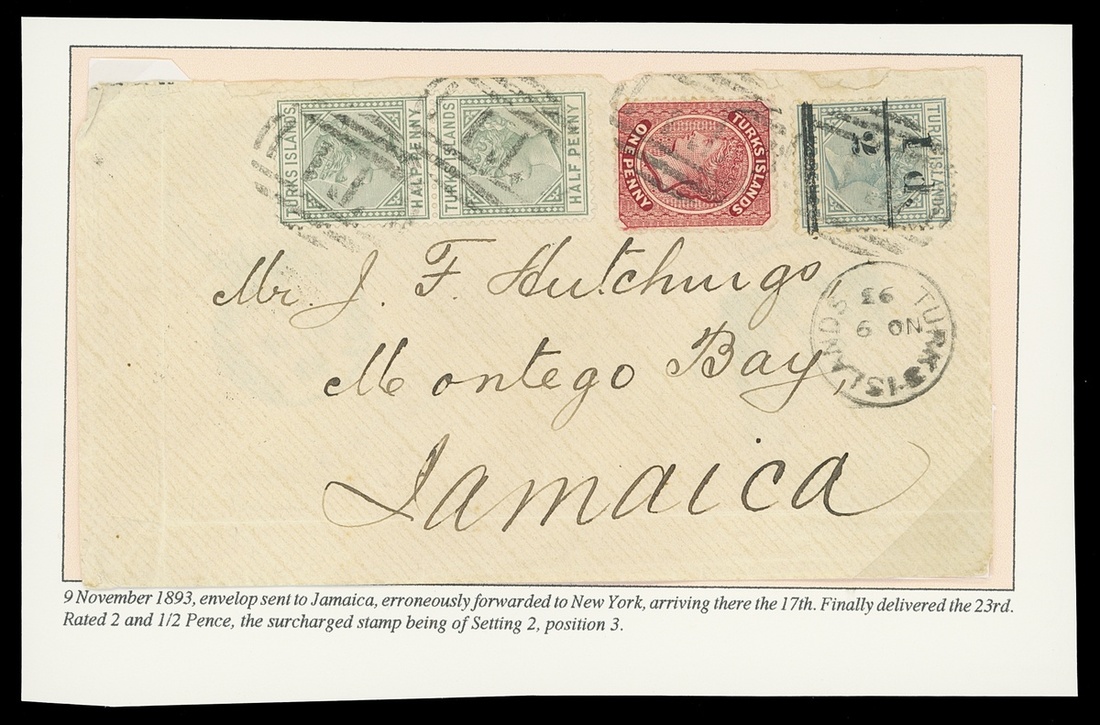 TURKS ISLANDS
HALF PENNY
TURKS ISLANDS
HALF PENNY
TURKS ISLANDS
ONE PENNY
TURKS ISLANDS
1 d.
2
Mr. J. F. Hutchings
Montego Bay
Jamaica
TURKS-ISLANDS
93
NO 9
9 November 1893, envelop sent to Jamaica, erroneously forwarded to New York, arriving there the 17th. Finally delivered the 23rd.
Rated 2 and 1/2 Pence, the surcharged stamp being of Setting 2, position 3.